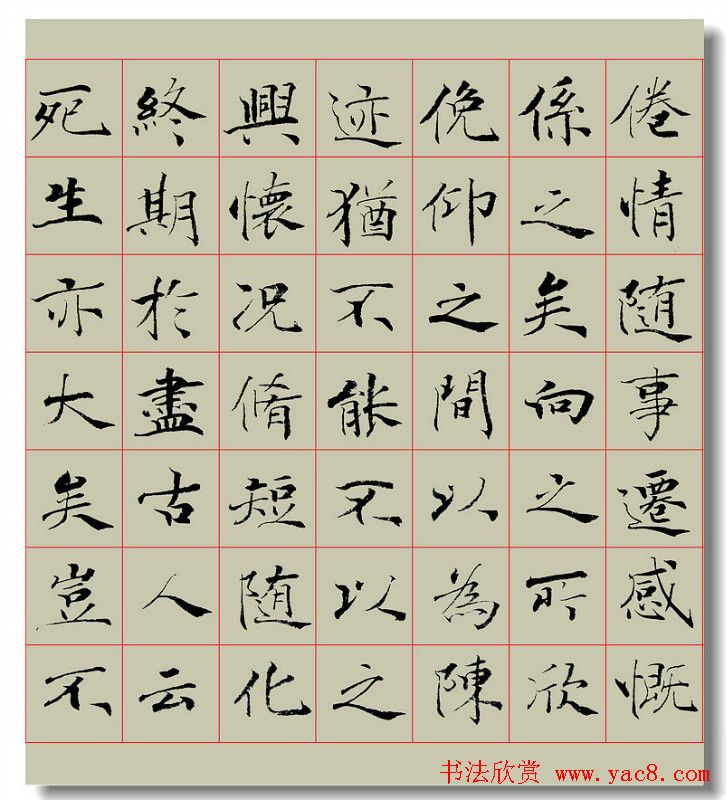 倦情随事遷感慨
係之矣向之所欣
俛仰之間以為陳
迹猶不能不以之
興懷况脩短随化
終期於盡古人云
死生亦大矣豈不
书法欣赏 www.yac8.com